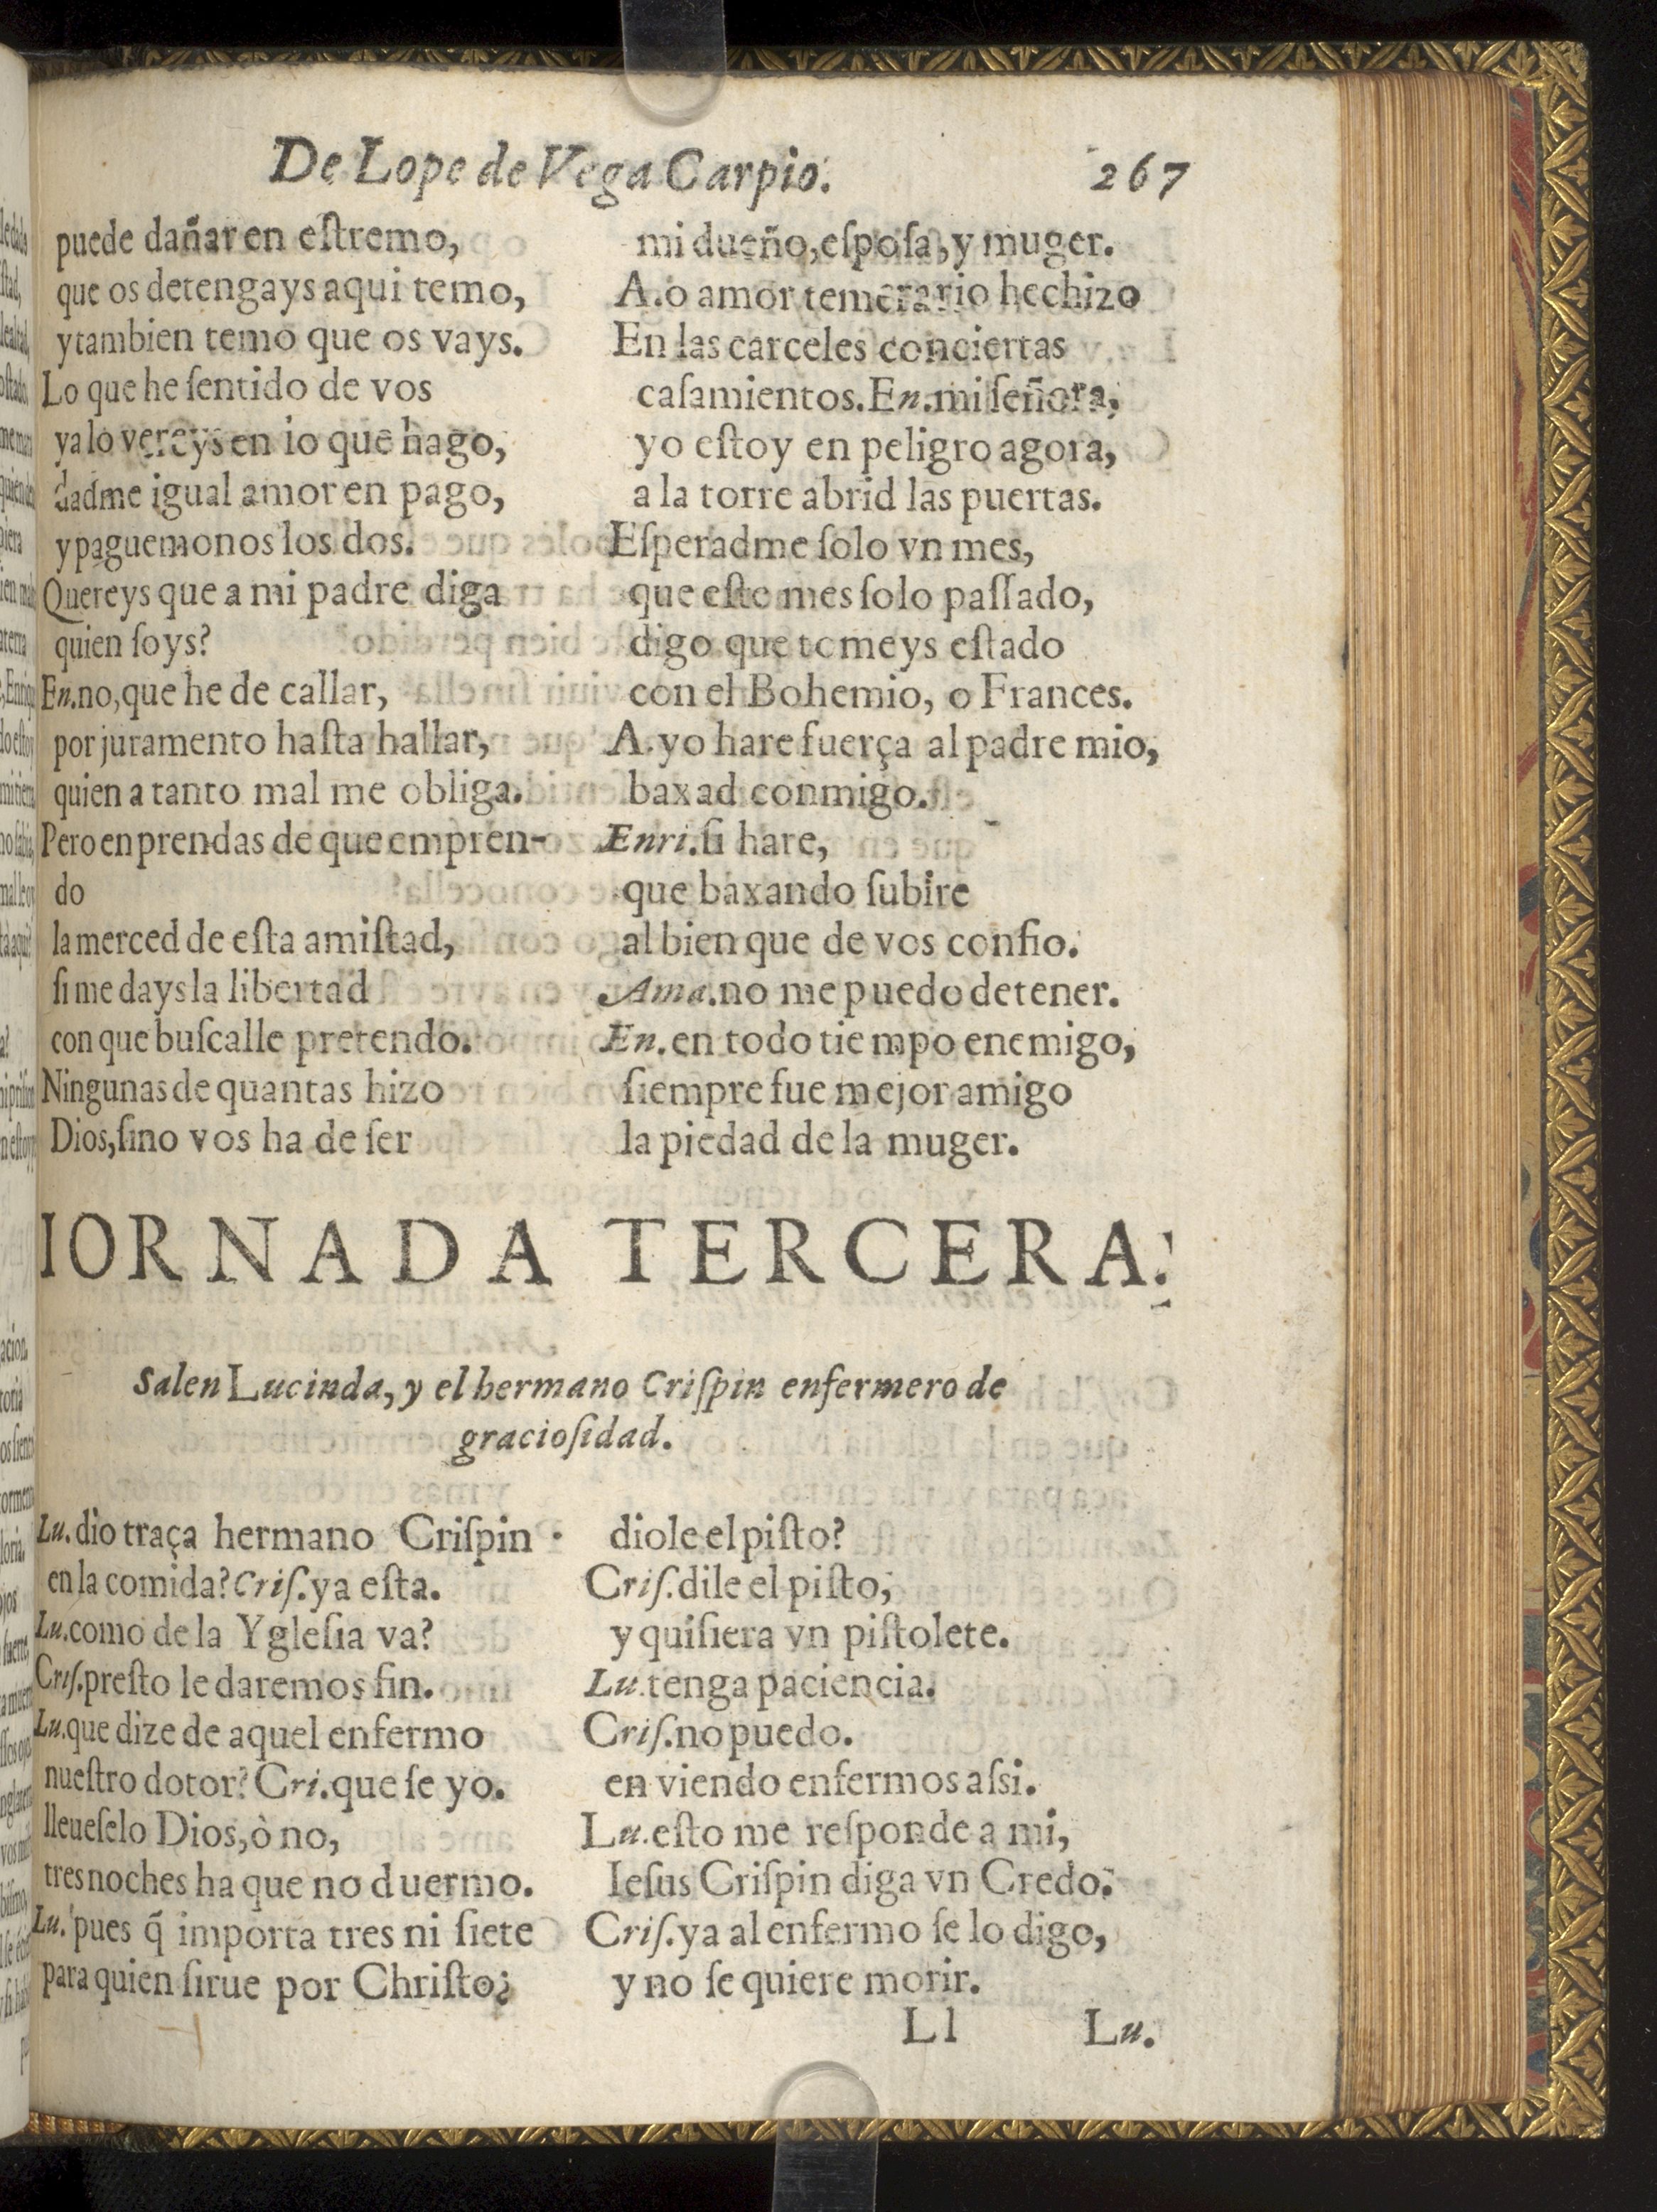 De Lope de Vega Carpio. 267
puede dañar en eſtremo,
que os detengays aqui temo,
y tambien temo que os vays.
Lo que he ſentido de vos
ya lo vereys en lo que hago,
dadme igual amor en pago,
y paguemonos los dos.
Quereys que a mi padre diga
quien ſoys?
En.no,que he de callar,
por juramento haſta hallar,
quien a tanto mal me obliga.
Pero en prendas de que empren-
do
la merced de eſta amiſtad,
ſi me days la libertad
con que buſcalle pretendo.
Ningunas de quantas hizo
Dios,ſino vos ha de ſer
mi dueño,eſpoſa,y muger.
A.o amor temerario hechizo
En las carceles conciertas
caſamientos.En.mi ſeñora,
yo eſtoy en peligro agora,
a la torre abrid las puertas.
Eſperadme ſolo vn mes,
que eſte mes ſolo paſſado,
digo que tomeys eſtado
con el Bohemio, o Frances.
A.yo hare fuerça al padre mio,
baxad conmigo.
Enri.ſi hare,
que baxando ſubire
al bien que de vos confio.
Ama.no me puedo detener.
En.en todo tiempo enemigo,
ſiempre fue mejor amigo
la piedad de la muger.
IORNADA TERCERA.
Salen Lucinda, y el hermano Criſpin enfermero de
gracioſidad.
Lu.dio traça hermano Criſpin
en la comida?Criſ.ya eſta.
Lu.como de la Ygleſia va?
Criſ.preſto le daremos fin.
Lu.que dize de aquel enfermo
nueſtro dotor?Cri.que ſe yo.
lleueſelo Dios,ò no,
tres noches ha que no duermo.
Lu.pues q̃ importa tres ni ſiete
para quien ſirue por Chriſto¿
diole el piſto?
Criſ.dile el piſto,
y quiſiera vn piſtolete.
Lu.tenga paciencia.
Criſ.no puedo.
en viendo enfermos aſsi.
Lu.eſto me reſponde a mi,
Ieſus Criſpin diga vn Credo.
Criſ.ya al enfermo ſe lo digo,
y no ſe quiere morir.
Ll Lu.